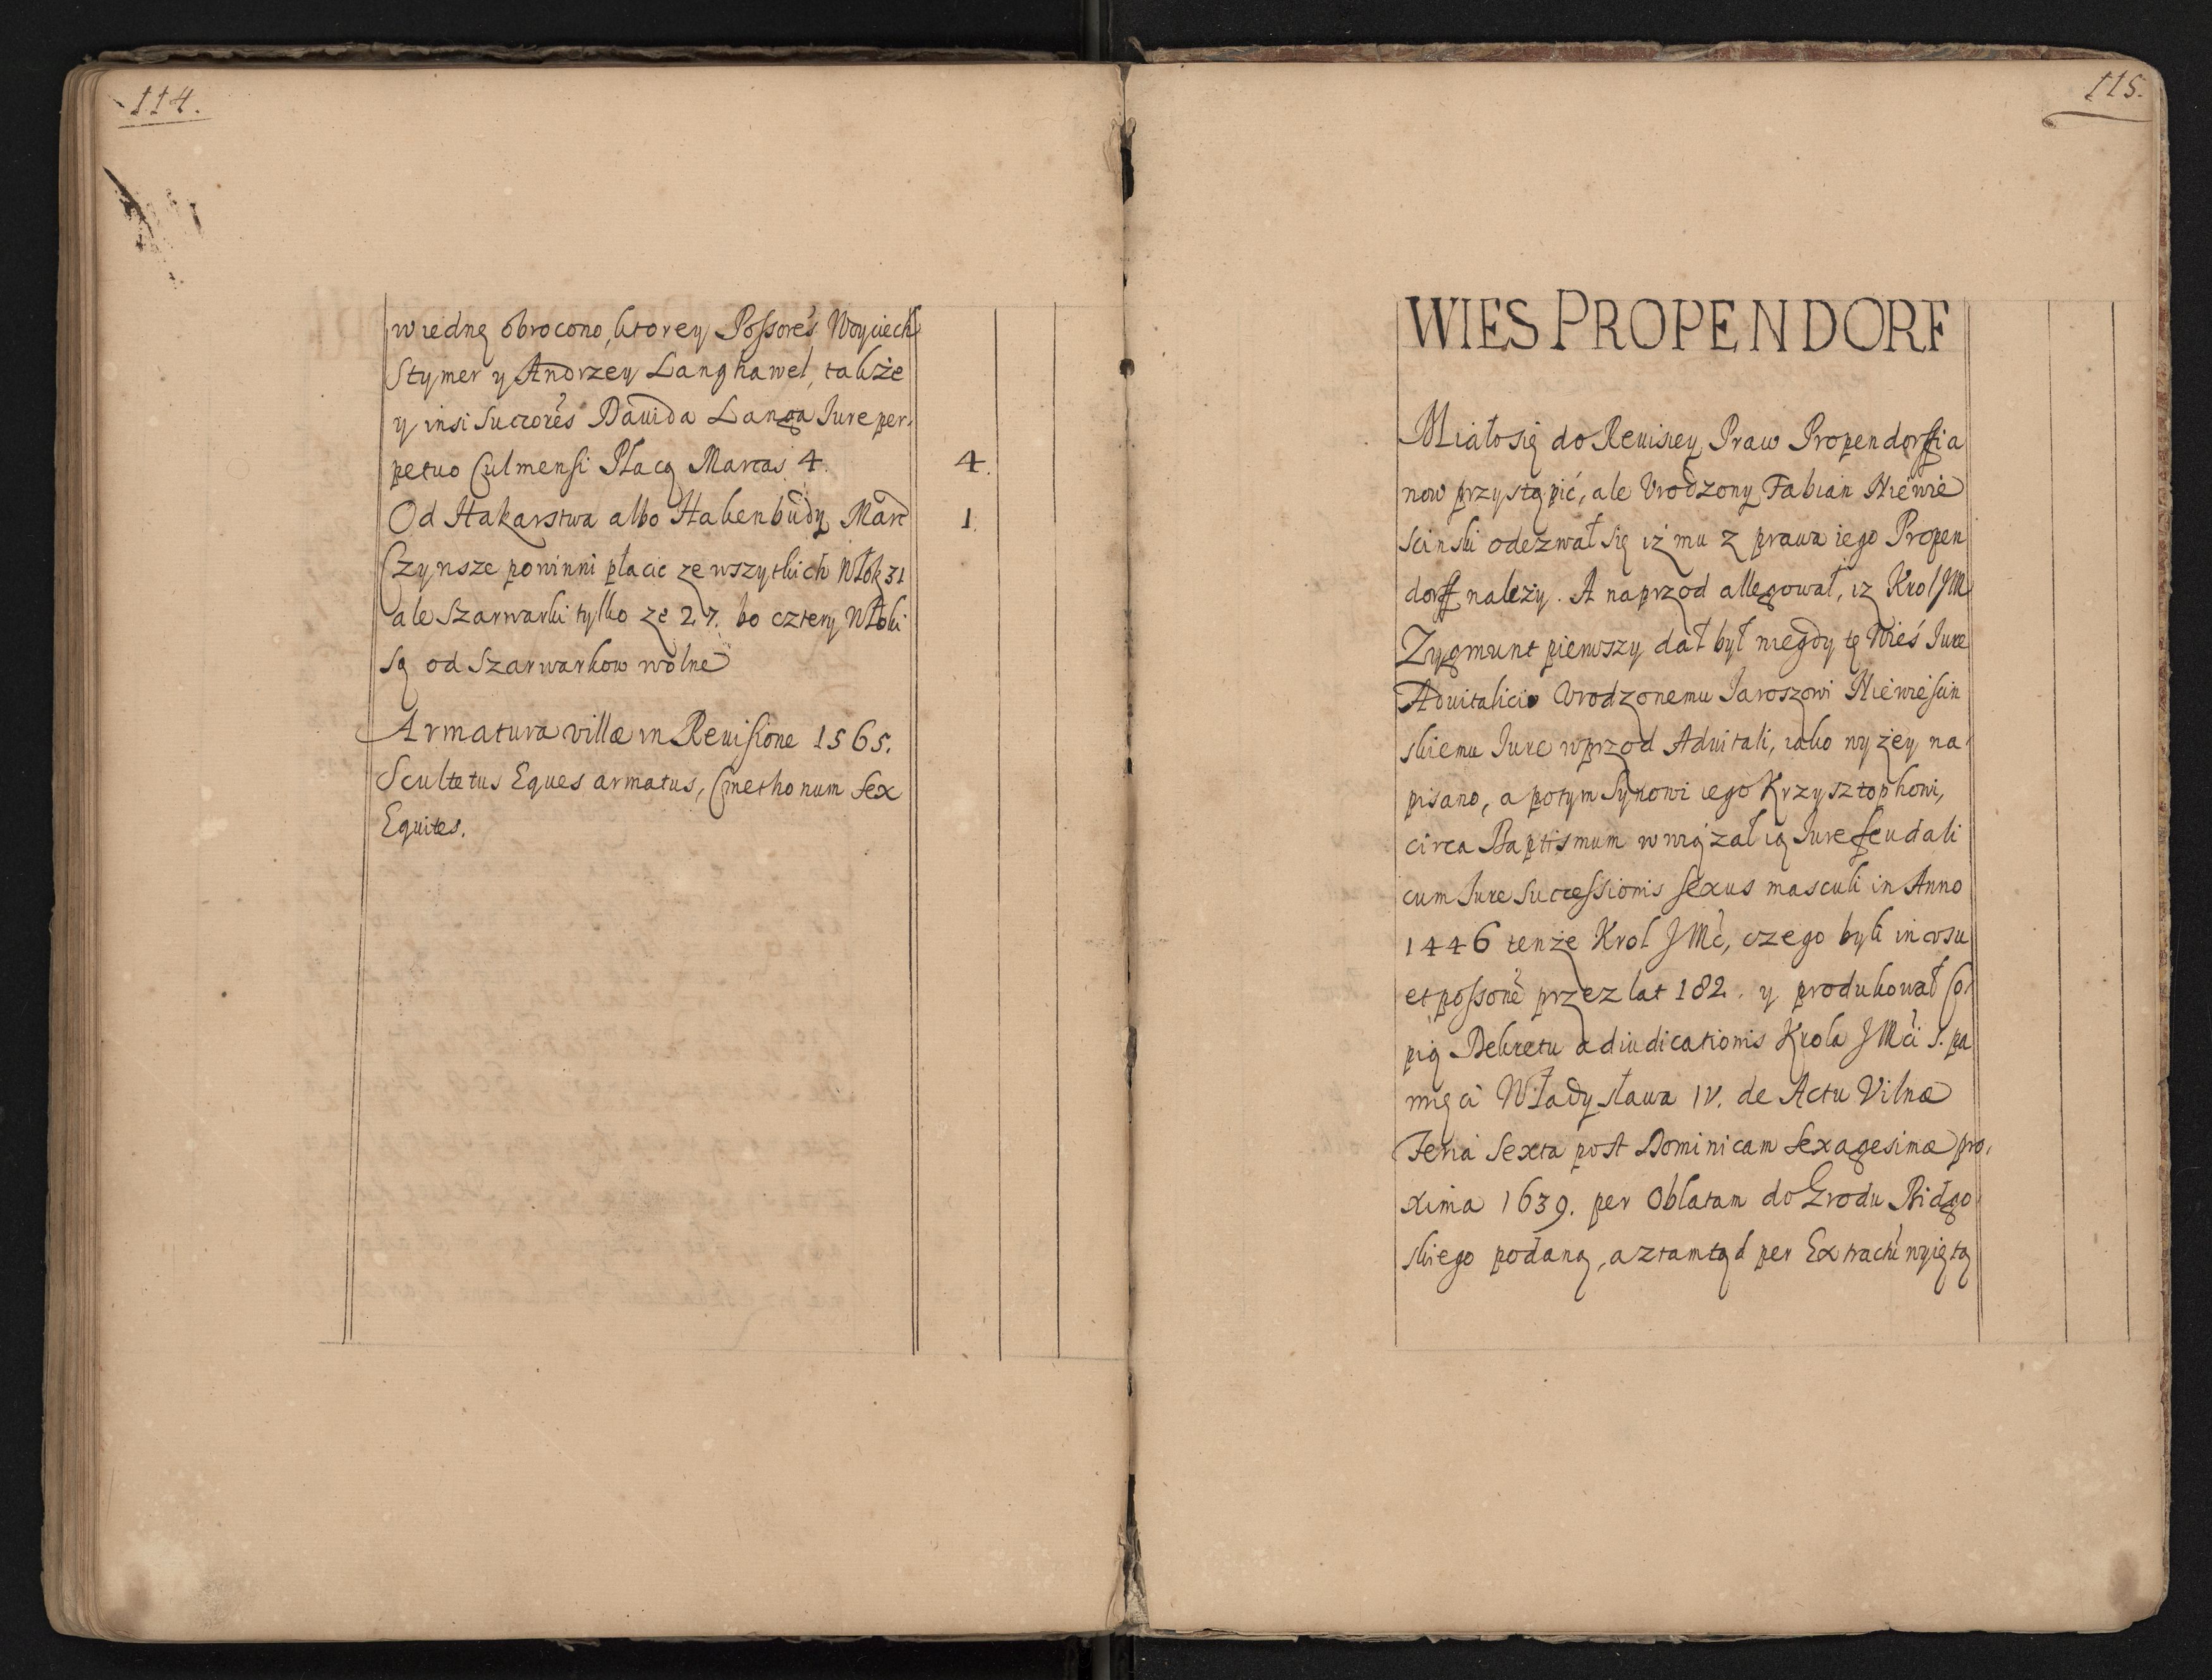 114.
w iednę obrocono, ktorey Possorẽs Woyciech
Stymer y Andrzey Langhawel, także
y insi Succorẽs Dawida Langa Iure per,
petuo Culmensi Płacą Marcas 4.
4.
Od Hakarstwa albo Hakenbudy Marc
1.
Czynsze powinni płacic ze wszytkich Włok 31
ale Szarwarki tylko ze 27. bo cztery Włoki
Są od Szarwarkow wolne
Armatura villæ in Revisione 1565.
Scultetus Eques armatus, Cmethonum sex
Equites.
115.
WIES PROPENDORF
Miało się do Rewisiey Praw Propendorffia
now przystąpić, ale Vrodzony Fabian Niewie
scinski odezwał się iż mu z prawa iego Propen
dorff należy. A naprzod allegował, iz Krol JM
Zygmunt pierwszy dał był niegdy tę Wieś Iure
Advitalicio Vrodzonemu Iaroszowi Niewieścin
skiemu Iure wprzod Advitali, iako nyżey na,
pisano, a potym Synowi iego Krzysztophowi,
circa Baptismum wwiązał ią Iure feudali
cum Iure Successionis sexus masculi in Anno
1446 tenże Krol JMć, czego byli in vsu
et possonẽ przez lat 182. y produkował Co,
pią Dekretu adiudicationis Krola JMći S. pa
mięci Władysława IV. de Actu Vilnæ
Feria Sexta post Dominicam Sexagesimæ pro,
xima 1639. per Oblatam do Grodu Bidgo
skiego podaną, a ztamtąd per Extractũ wyiętą